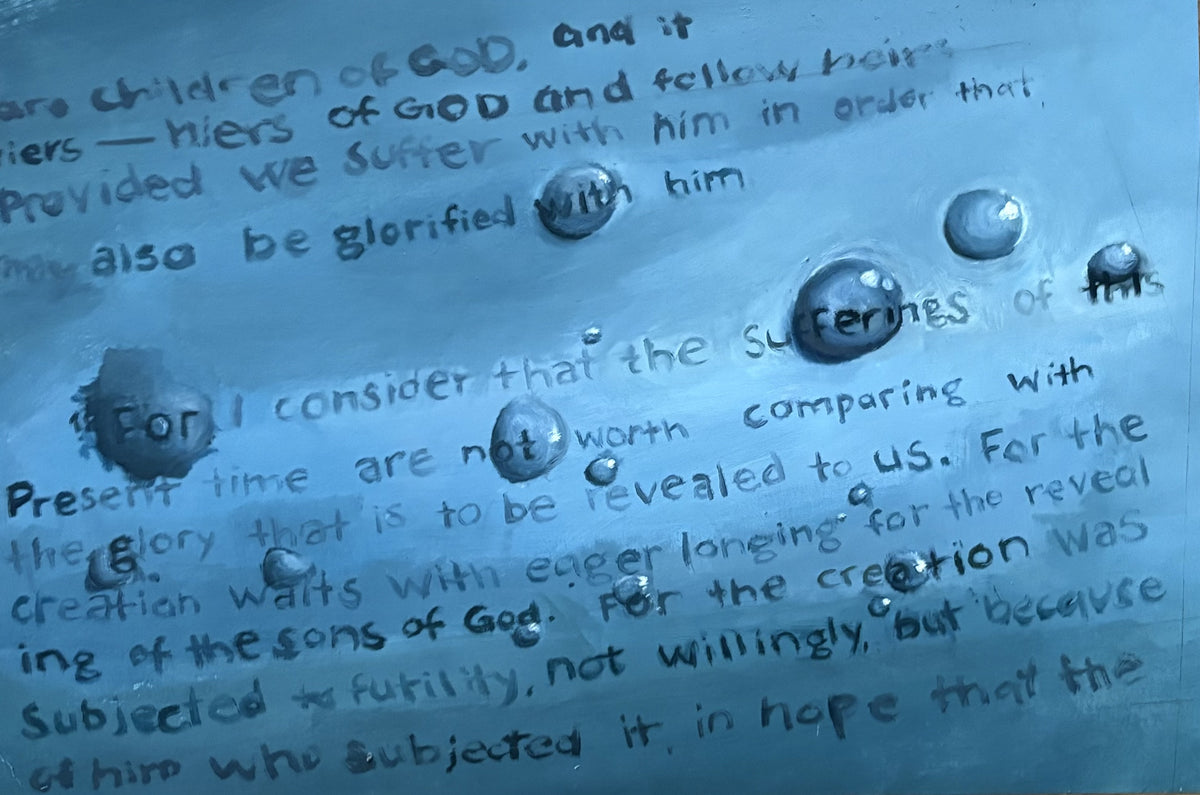 are children of GOD, and if
iers — hiers of GOD and fellow heirs
Provided we suffer with him in order that
may also be glorified with him
For I consider that the Sufferings of this
Present time are not worth comparing with
the glory that is to be revealed to us. For the
creation waits with eager longing for the reveal
ing of the sons of God. For the creation was
Subjected to futility, not willingly, but because
of him who subjected it, in hope that the